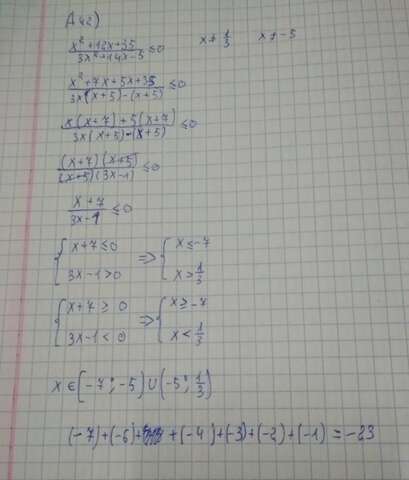 A42)
x²+12x+35 / 3x²+14x-5 ≤0 x≠1/3 x≠-5
x²+7x+5x+35 / 3x(x+5)-(x+5) ≤0
x(x+7)+5(x+7) / 3x(x+5)-(x+5) ≤0
(x+7)(x+5) / (x+5)(3x-1) ≤0
x+7 / 3x-1 ≤0
{ x+7≤0 => { x≤-7
3x-1>0 x>1/3
{ x+7≥0 => { x≥-7
3x-1<0 x<1/3
x∈[-7;-5)∪(-5;1/3)
(-7)+(-6)+ +(-4)+(-3)+(-2)+(-1)=-23